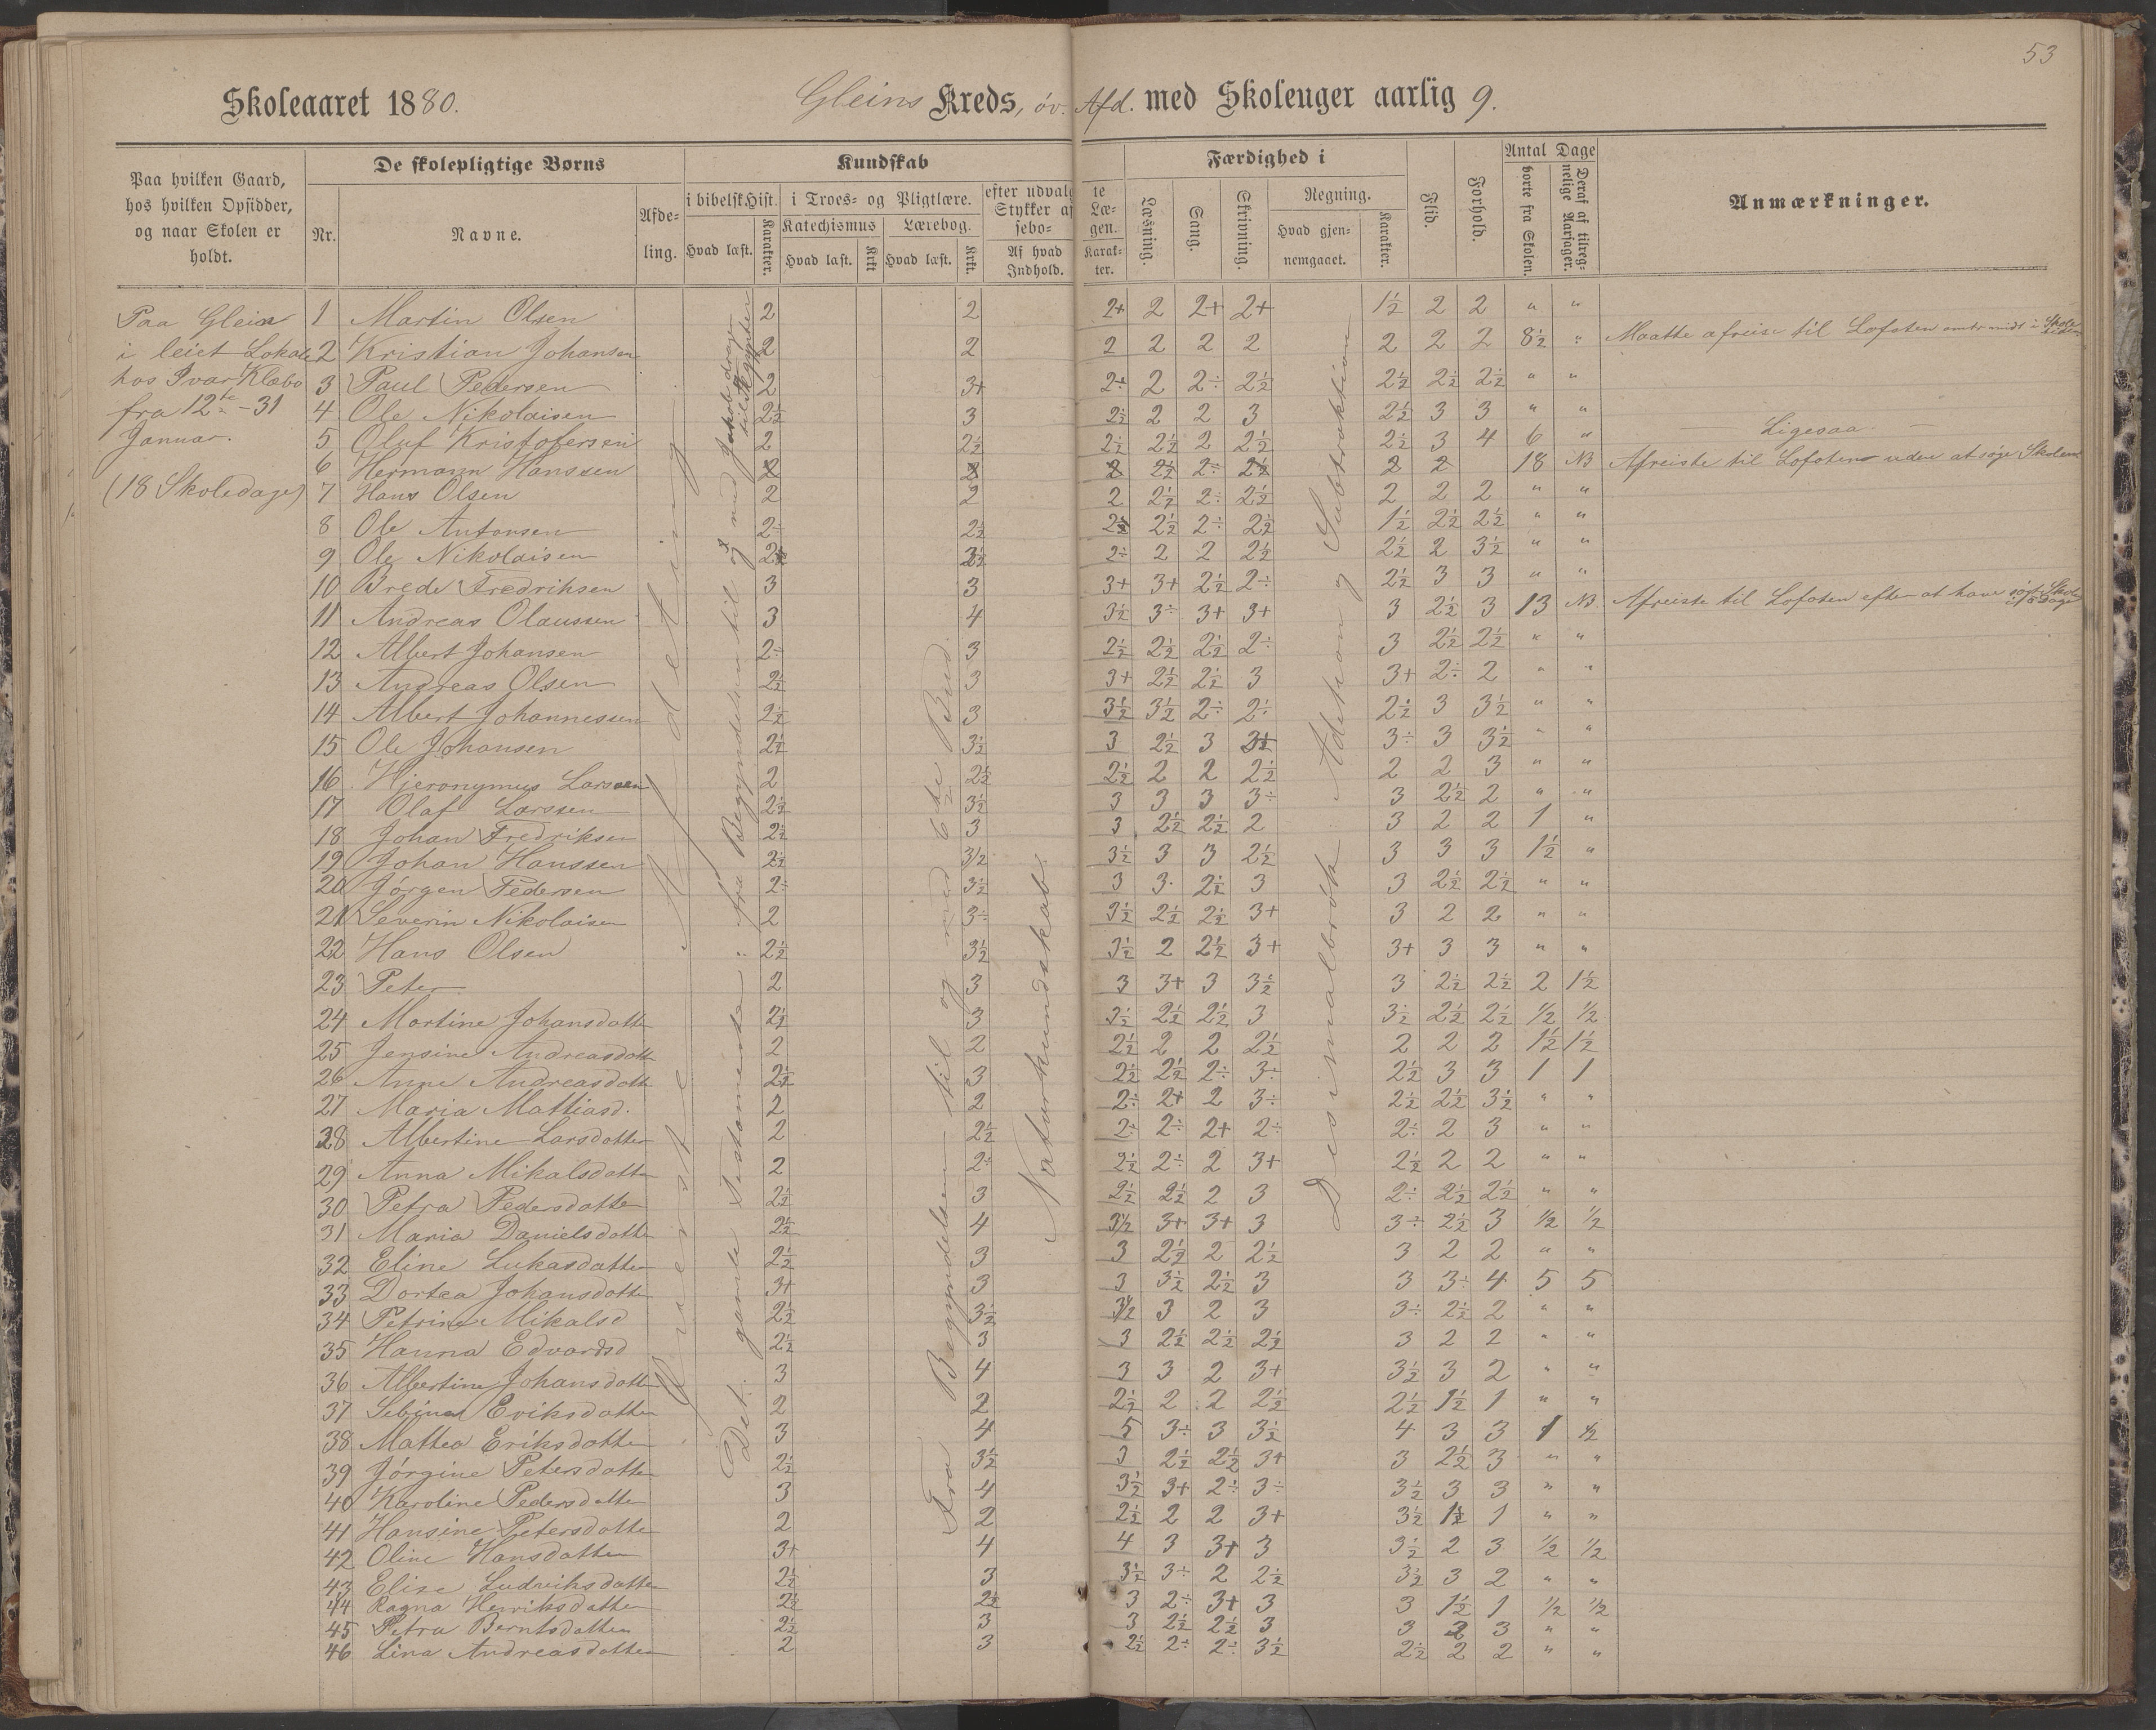 53
Skoleaaret 1880. Gleins Kreds, öv. Afd. med Skoleuger aarlig 9.
Paa hvilken Gaard, hos hvilken Opsidder, og naar Skolen er holdt.
De skolepligtige Børns
Nr. Navne. Afdeling.
Kundskab
i bibelsk Hist. Hvad læst. Karakter.
i Troes- og Pligtlære.
Katechismus Hvad læst. Krkt.
Lærebog. Hvad læst. Krkt.
efter udvalgte Stykker af Læsebogen.
Af hvad Indhold. Karakter.
Færdighed i
Læsning. Sang. Skrivning.
Regning. Hvad gjennemgaaet. Karakter.
Flid. Forhold.
Antal Dage
borte fra Skolen. Deraf af tilregnelige Aarsager.
Anmærkninger.
Paa Glein
i leiet Lokale
hos Ivar Klæbo
fra 12te – 31
Januar.
(18 Skoledage)
Øverste Afdeling
Det gamle Testamente: fra Begyndelsen til og med Jakobs drage til Ægypten
Fra Begyndelsen til og med 6te Bud
Naturkundskab
Desimalbrøk: Adektion og Subtraktion
1 Martin Olsen 2 2 2+ 2 2+ 2+ 1½ 2 2 " "
2 Kristian Johansen 2 2 2 2 2 2 2 2 2 8½ " Maatte afreise til Lofoten omtr midt i Skoletiden
3 Paul Pedersen 2 3+ 2÷ 2 2÷ 2½ 2½ 2½ 2½ " "
4 Ole Nikolaisen 2½ 3 2½ 2 2 3 2½ 3 3 " "
5 Oluf Kristofersen 2 2½ 2½ 2½ 2 2½ 2½ 3 4 6 " Ligesaa
6 Hermann Hanssen 2 2 2 2½ 2÷ 2½ 2 2 18 NB Afreiste til Lofoten uden at søge Skolen
7 Hans Olsen 2 2 2 2½ 2÷ 2½ 2 2 2 " "
8 Ole Antonsen 2÷ 2½ 2½ 2½ 2÷ 2½ 1½ 2½ 2½ " "
9 Ole Nikolaisen 2½ 3½ 2÷ 2 2 2½ 2½ 2 3½ " "
10 Brede Fredriksen 3 3 3+ 3+ 2½ 2÷ 2½ 3 3 " "
11 Andreas Olaussen 3 4 3½ 3÷ 3+ 3+ 3 2½ 3 13 NB Afreiste til Lofoten efter at have søgt Skolen i 5 Dage
12 Albert Johansen 2÷ 3 2½ 2½ 2½ 2÷ 3 2½ 2½ " "
13 Andreas Olsen 2½ 3 3+ 2½ 2½ 3 3+ 2÷ 2 " "
14 Albert Johannessen 2½ 3 3½ 3½ 2÷ 2÷ 2½ 3 3½ " "
15 Ole Johansen 2½ 3½ 3 2½ 3 3÷ 3 3½ " "
16 Hjeronymus Larssen 2 2½ 2½ 2 2 2½ 2 2 3 " "
17 Olaf Larssen 2½ 3½ 3 3 3 3÷ 3 2½ 2 " "
18 Johan Fredriksen 2½ 3 3 2½ 2½ 2 3 2 2 1 "
19 Johan Hanssen 2½ 3½ 3½ 3 3 2½ 3 3 3 1½ "
20 Jørgen Pedersen 2÷ 3½ 3 3 2½ 3 3 2½ 2½ " "
21 Severin Nikolaisen 2 3÷ 3½ 2½ 2½ 3+ 3 2 2 " "
22 Hans Olsen 2½ 3½ 3½ 2 2½ 3+ 3+ 3 3 " "
23 Peter 2 3 3 3+ 3 3½ 3 2½ 2½ 2 1½
24 Martine Johansdatter 2½ 3 3½ 2½ 2½ 3 3½ 2½ 2½ ½ ½
25 Jensine Andreasdatt 2 2 2½ 2 2 2½ 2 2 2 1½ 1½
26 Anne Andreasdatt 2½ 3 2½ 2½ 2÷ 3÷ 2½ 3 3 1 1
27 Maria Mattiasd. 2 2 2÷ 2+ 2 3÷ 2½ 2½ 3½ " "
28 Albertine Larsdatter 2 2½ 2÷ 2÷ 2+ 2÷ 2÷ 2 3 " "
29 Anna Mikalsdatter 2 2÷ 2½ 2÷ 2 3+ 2½ 2 2 " "
30 Petra Pedersdatter 2½ 3 2½ 2½ 2 3 2÷ 2½ 2½ " "
31 Maria Danielsdatter 2½ 4 3½ 3+ 3+ 3 3÷ 2½ 3 ½ ½
32 Eline Lukasdatter 2½ 3 3 2½ 2 2½ 3 2 2 " "
33 Dortea Johansdatter 3+ 3 3 3½ 2½ 3 3 3÷ 4 5 5
34 Petrine Mikalsd 2½ 3½ 3½ 3 2 3 3÷ 2½ 2 " "
35 Hanna Edvardsd 2½ 3 3 2½ 2½ 2½ 3 2 2 " "
36 Albertine Johansdatter 3 4 3 3 2 3+ 3½ 3 2 " "
37 Sebina Eriksdatter 2 2 2½ 2 2 2½ 2½ 1½ 1 " "
38 Mattea Eriksdatter 3 4 5 3÷ 3 3½ 4 3 3 1 ½
39 Jørgine Petersdatter 2½ 3½ 3 2½ 2½ 3+ 3 2½ 3 " "
40 Karoline Pedersdatter 3 4 3½ 3+ 2÷ 3÷ 3½ 3 3 " "
41 Hansine Petersdatter 2 2 2½ 2 2 3+ 3½ 1½ 1 " "
42 Oline Hansdatter 3+ 4 4 3 3+ 3 3½ 2 3 ½ ½
43 Elise Ludviksdatter 2½ 3 3½ 3÷ 2 2½ 3½ 3 2 " "
44 Ragna Henriksdatter 2½ 2½ 3 2÷ 3+ 3 3 1½ 1 ½ ½
45 Petra Berntsdatter 2½ 3 3 2½ 2½ 3 3 2 3 " "
46 Lina Andreasdatter 2 3 2½ 2÷ 2÷ 3½ 2½ 2 2 " "